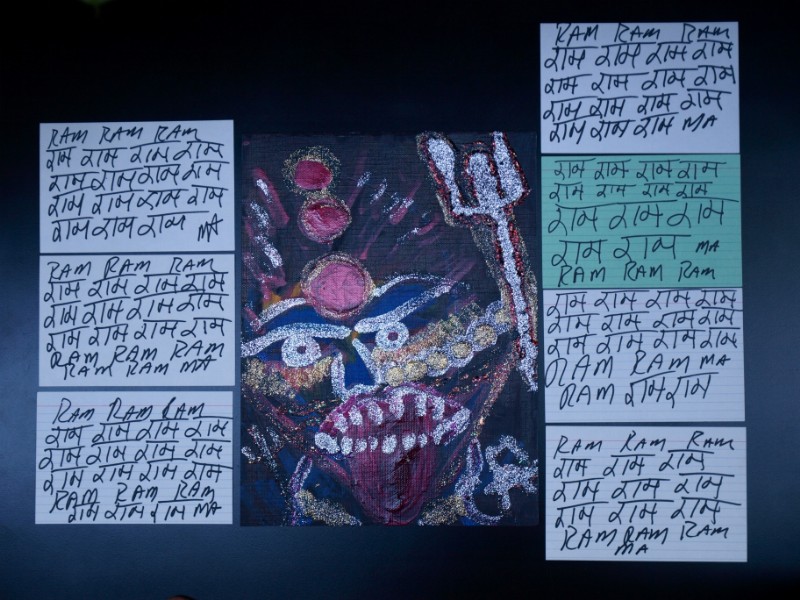 RAM RAM RAM
राम राम राम राम
राम राम राम राम
राम राम राम राम
राम राम राम MA
RAM RAM RAM
राम राम राम राम
राम राम राम राम
राम राम राम राम
RAM RAM RAM
RAM RAM RAM MA
RAM RAM RAM
राम राम राम राम
राम राम राम राम
राम राम राम राम
RAM RAM RAM
राम राम राम MA
ॐ
RAM RAM RAM
राम राम राम राम
राम राम राम राम
राम राम राम राम
राम राम राम MA
राम राम राम राम
राम राम राम राम
राम राम राम
राम राम MA
RAM RAM RAM
राम राम राम राम
राम राम राम राम
राम राम राम राम
RAM RAM MA
RAM राम राम
RAM RAM RAM
राम राम राम
राम राम राम
राम राम राम
RAM RAM RAM
MA